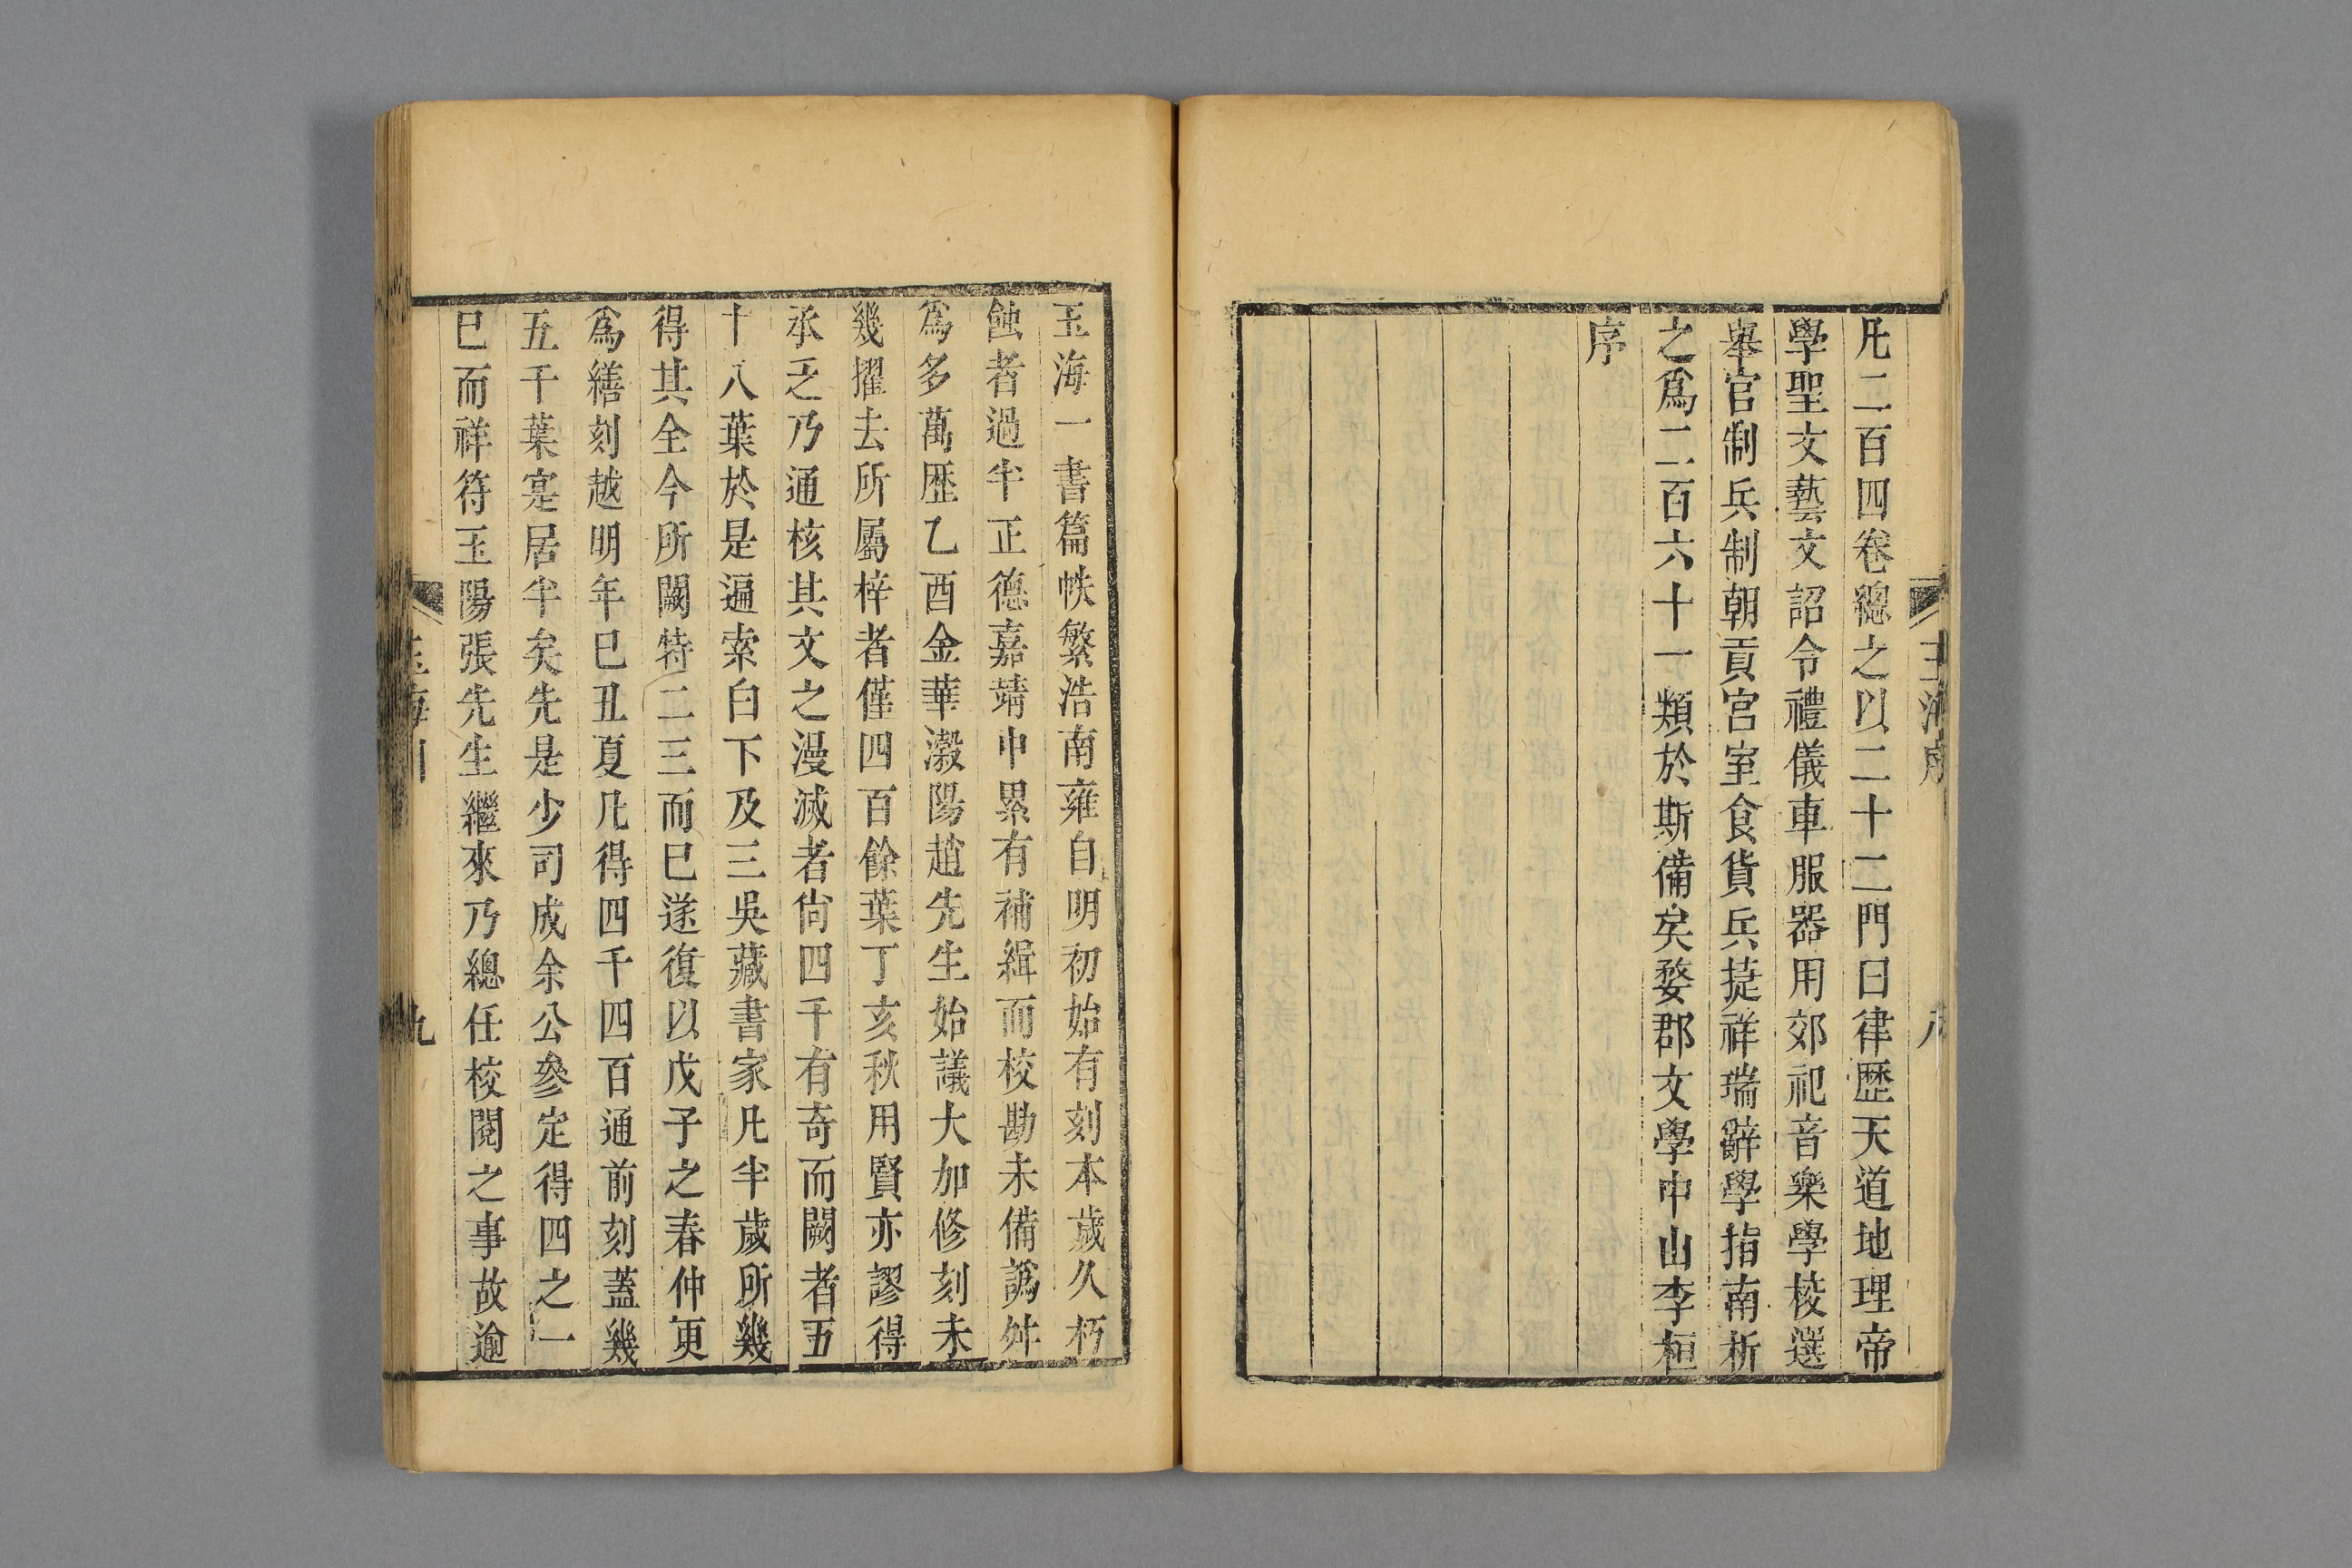 玉海序
八
凡二百四卷總之以二十二門曰律歷天道地理帝
學聖文藝文詔令禮儀車服器用郊祀音樂學校選
舉官制兵制朝貢宮室食貨兵捷祥瑞辭學指南析
之爲二百六十一類於斯備矣婺郡文學中山李桓
序
玉海一書篇帙繁浩南雍自明初始有刻本歲久朽
蝕者過半正德嘉靖中累有補緝而校勘未備譌舛
爲多萬歷乙酉金華瀔陽趙先生始議大加修刻未
幾擢去所屬梓者僅四百餘葉丁亥秋用賢亦謬得
承乏乃通核其文之漫滅者尙四千有奇而闕者五
十八葉於是遍索白下及三吳藏書家凡半歲所幾
得其全今所闕特二三而巳遂復以戊子之春仲更
爲繕刻越明年巳丑夏凡得四千四百通前刻蓋幾
五千葉寔居半矣先是少司成余公參定得四之一
巳而祥符玉陽張先生繼來乃總任校閱之事故逾
玉海
九